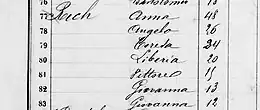 76 Bartolomeo 15
77 Rech Anna 48
78 Angelo 26
79 Tereda 24
80 Liberia 20
81 Vittore 15
82 Giovanna 13
83 Giovanna 12